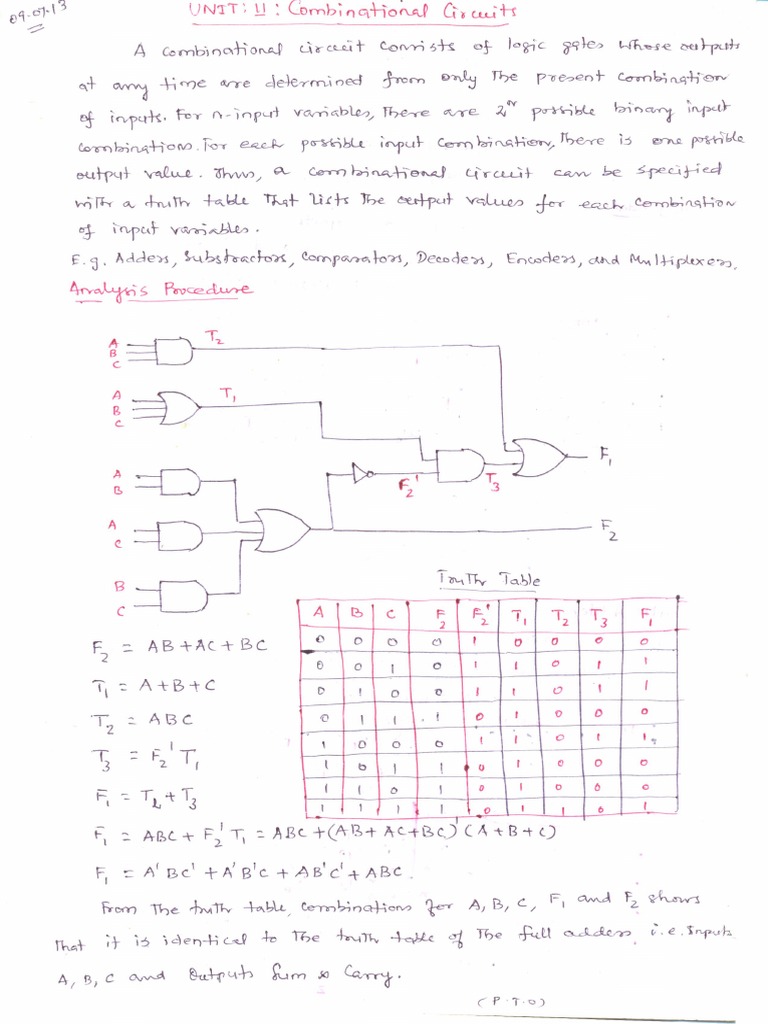 09.07.13
UNIT: II : Combinational Circuits
A combinational circuit consists of logic gates whose outputs
at any time are determined from only the present combination
of inputs. For n-input variables, there are 2^n possible binary input
combinations. For each possible input combination, there is one possible
output value. Thus, a combinational circuit can be specified
with a truth table that lists the output values for each combination
of input variables.
E.g. Adders, Substractors, Comparators, Decoders, Encoders, and Multiplexers.
Analysis Procedure
A
B
C
T2
A
B
C
T1
A
B
F2'
T3
F1
A
C
F2
B
C
Truth Table
A B C F2 F2' T1 T2 T3 F1
0 0 0 0 1 0 0 0 0
0 0 1 0 1 1 0 1 1
0 1 0 0 1 1 0 1 1
0 1 1 1 0 1 0 0 0
1 0 0 0 1 1 0 1 1
1 0 1 1 0 1 0 0 0
1 1 0 1 0 1 0 0 0
1 1 1 1 0 1 1 0 1
F2 = AB + AC + BC
T1 = A+B+C
T2 = ABC
T3 = F2' T1
F1 = T2 + T3
F1 = ABC + F2' T1 = ABC + (AB + AC + BC)' (A + B + C)
F1 = A'BC' + A'B'C + AB'C' + ABC.
From the truth table, combinations for A, B, C, F1 and F2 shows
that it is identical to the truth table of the full adders i.e. Inputs
A, B, C and Outputs Sum & Carry.
(P.T.O)